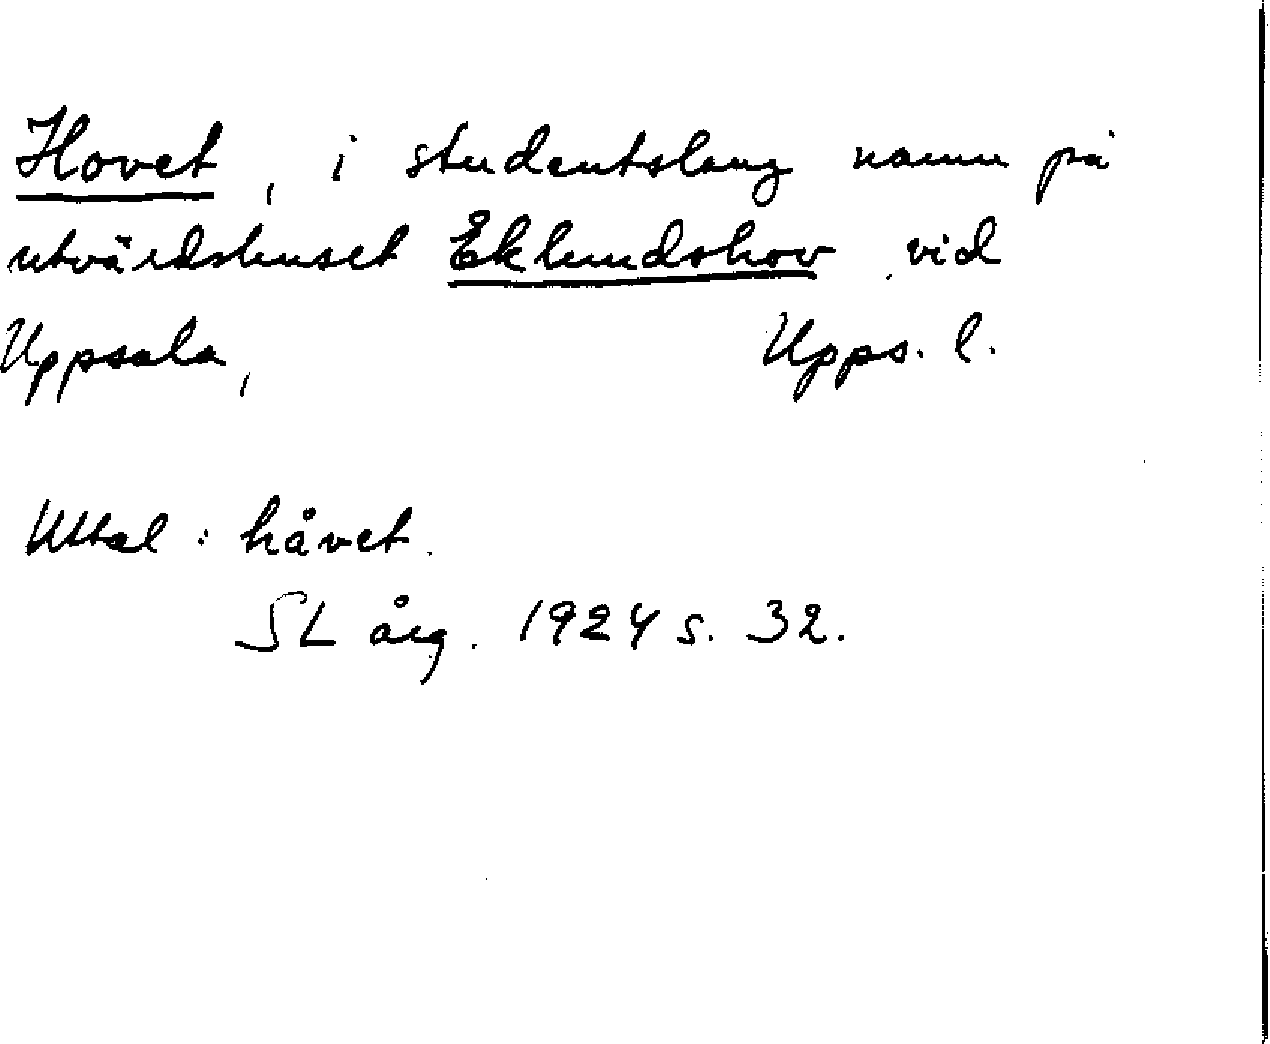 Hovet, i studentslang namn på
utvärdshuset Eklundshov vid
Uppsala, Upps. l.
Uttal: håvet.
SL årg. 1924 s. 32.